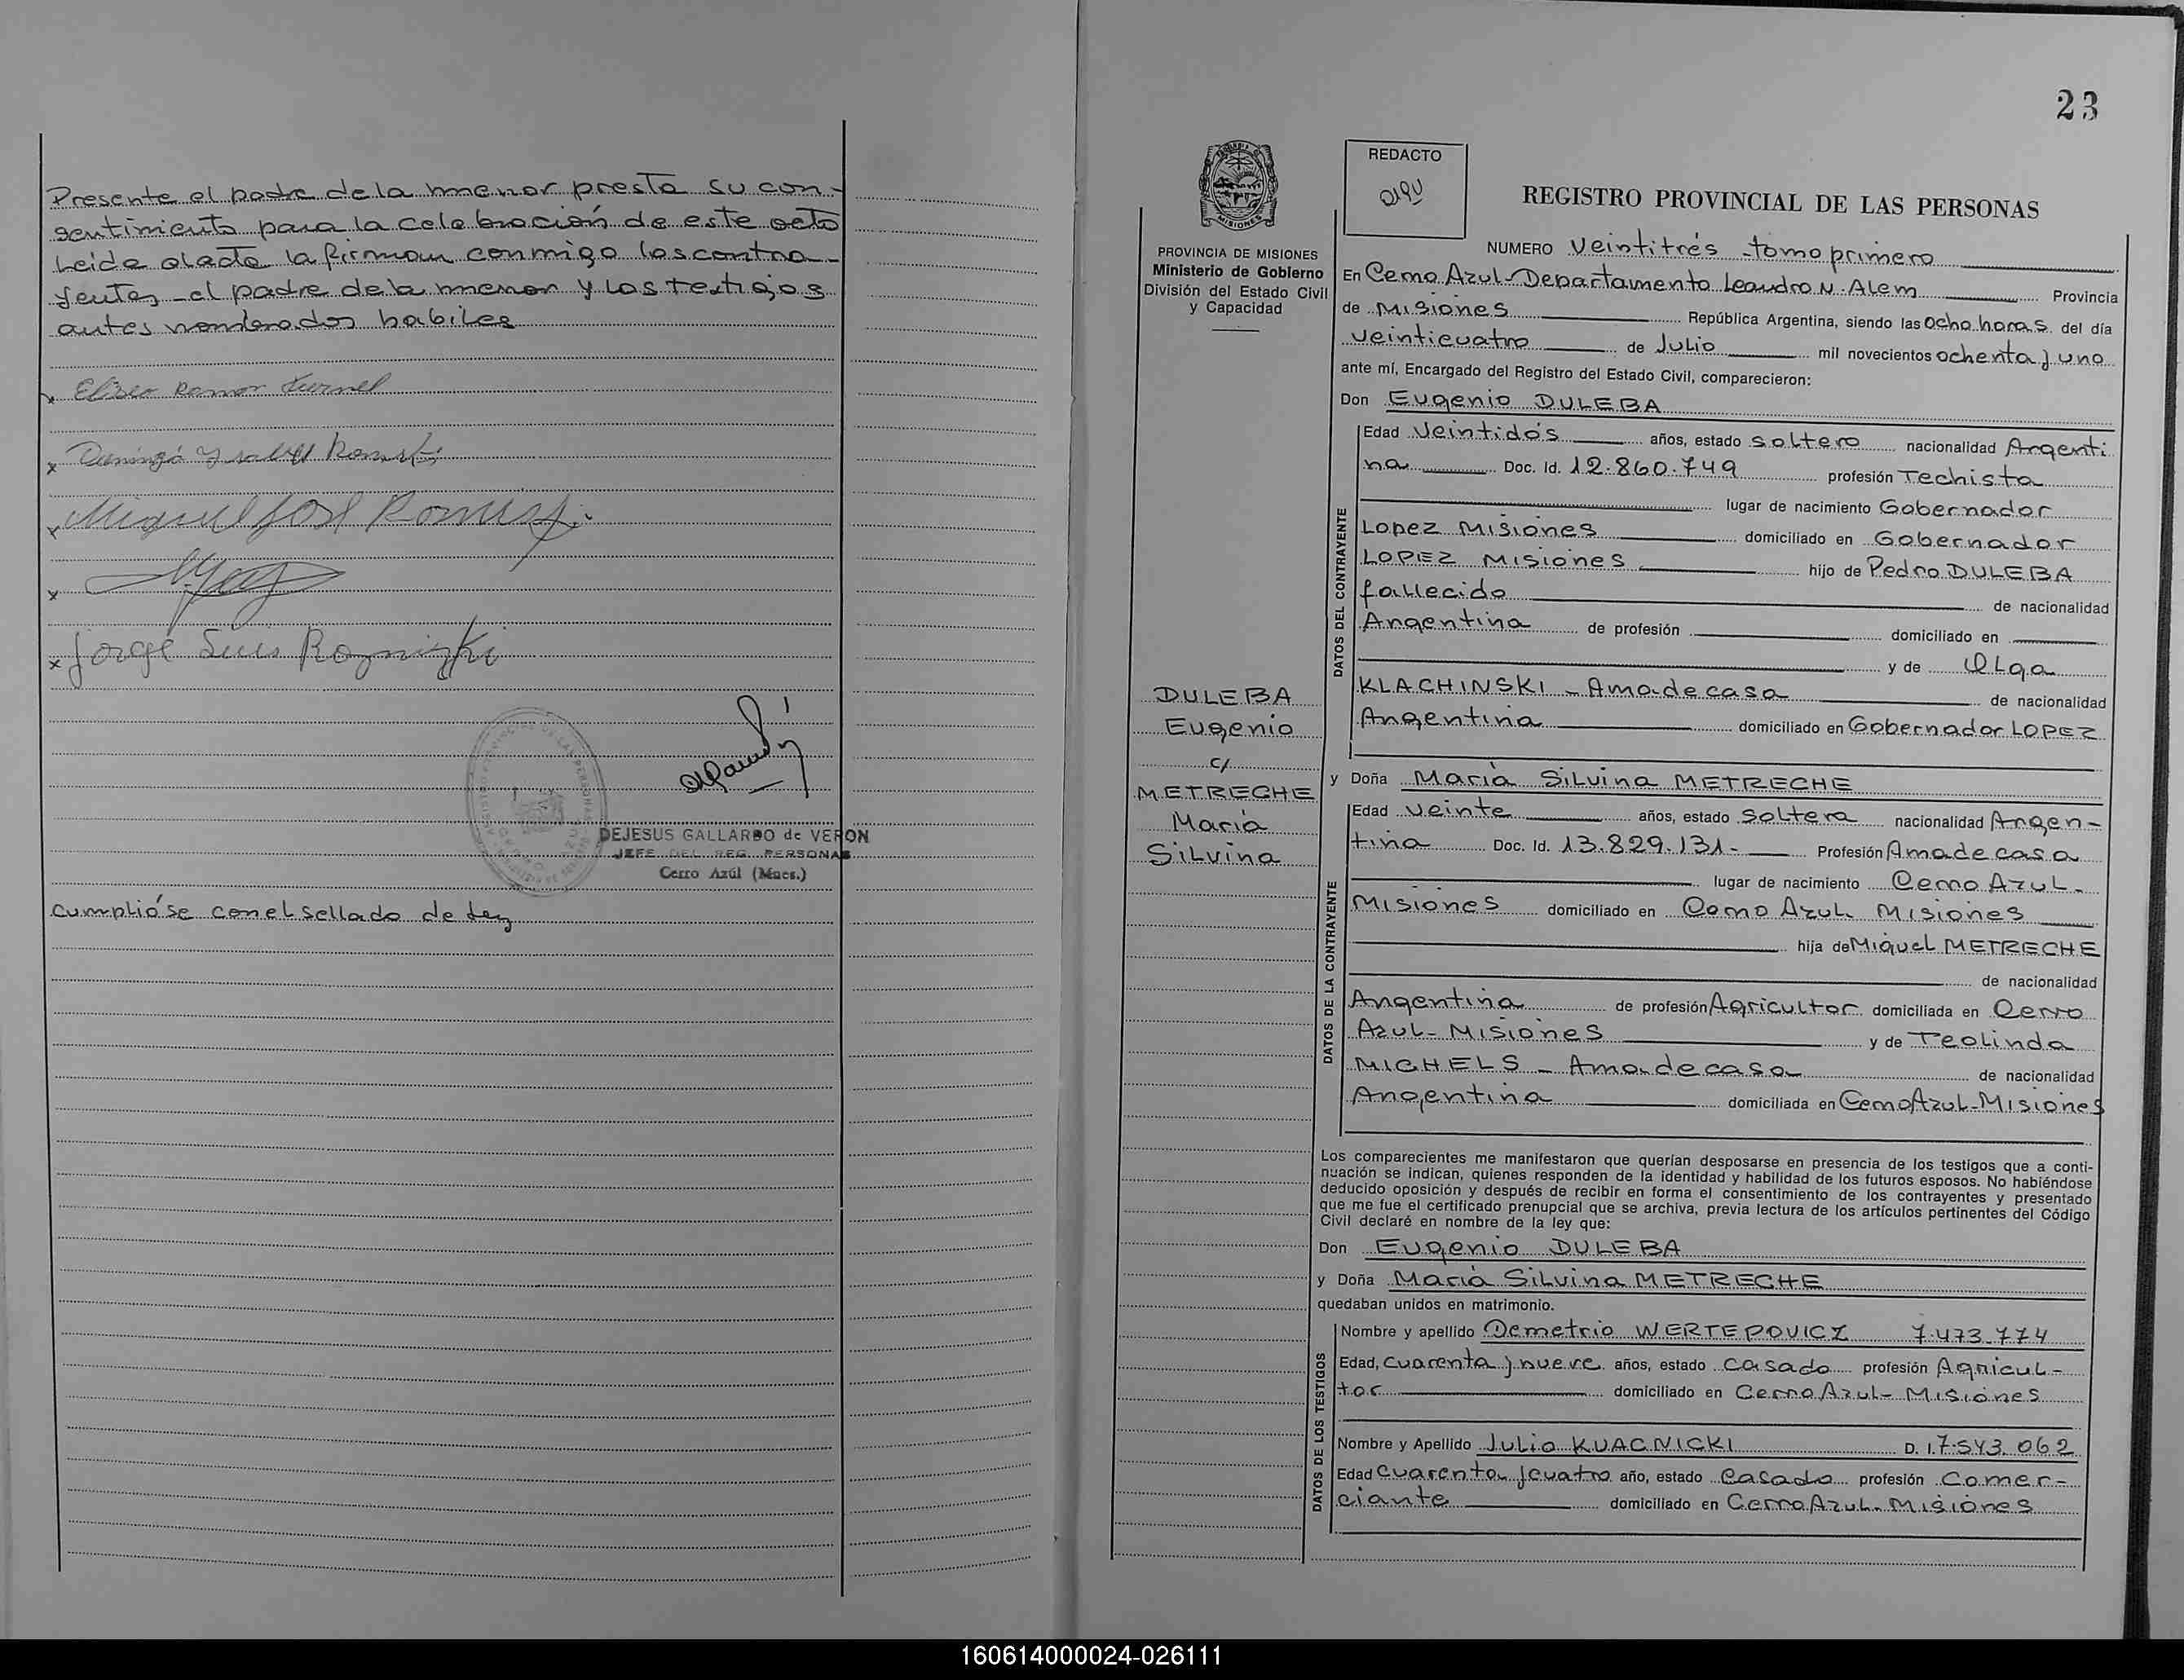 Presente el padre de la menor presta su con-
sentimiento para la celebración de este acto
Leida el acta la firman conmigo los contra-
yentes el padre de la menor y los testigos
antes nombrados habiles
x Eliseo Ramon
x Ysabel
x Miguel José
x
x Jorge Luis
DEJESUS GALLARDO de VERON
JEFE DEL REG. PERSONAS
Cerro Azúl (Mnes.)
cumplióse con el sellado de ley
23
REDACTO
REGISTRO PROVINCIAL DE LAS PERSONAS
PROVINCIA DE MISIONES
Ministerio de Gobierno
División del Estado Civil
y Capacidad
NUMERO Veintitrés - tomo primero
En Cerro Azul - Departamento Leandro N. Alem Provincia
de Misiones República Argentina, siendo las Ocho horas del día
veinticuatro de Julio mil novecientos ochenta y uno
ante mí, Encargado del Registro del Estado Civil, comparecieron:
Don Eugenio DULEBA
DATOS DEL CONTRAYENTE
Edad Veintidós años, estado soltero nacionalidad Argenti
na Doc. Id. 12.860.749 profesión Techista
lugar de nacimiento Gobernador
Lopez Misiones domiciliado en Gobernador
LOPEZ Misiones hijo de Pedro DULEBA
fallecido de nacionalidad
Argentina de profesión domiciliado en
y de Olga
KLACHINSKI - Ama de casa de nacionalidad
Argentina domiciliado en Gobernador LOPEZ
DULEBA
Eugenio
c/
METRECHE
María
Silvina
y Doña María Silvina METRECHE
DATOS DE LA CONTRAYENTE
Edad veinte años, estado soltera nacionalidad Argen-
tina Doc. Id. 13.829.131- Profesión Ama de casa
lugar de nacimiento Cerro Azul-
Misiones domiciliado en Cerro Azul Misiones
hija de Miguel METRECHE
de nacionalidad
Argentina de profesión Agricultor domiciliada en Cerro
Azul - Misiones y de Teolinda
MICHELS - Ama de casa de nacionalidad
Argentina domiciliada en Cerro Azul-Misiones
Los comparecientes me manifestaron que querían desposarse en presencia de los testigos que a conti-
nuación se indican, quienes responden de la identidad y habilidad de los futuros esposos. No habiéndose
deducido oposición y después de recibir en forma el consentimiento de los contrayentes y presentado
que me fue el certificado prenupcial que se archiva, previa lectura de los artículos pertinentes del Código
Civil declaré en nombre de la ley que:
Don Eugenio DULEBA
y Doña María Silvina METRECHE
quedaban unidos en matrimonio.
DATOS DE LOS TESTIGOS
Nombre y apellido Demetrio WERTEPOVICZ 7.473.774
Edad, cuarenta y nueve años, estado casado profesión Agricul-
tor domiciliado en Cerro Azul - Misiones
Nombre y Apellido Julio KUACNICKI D. I. 7.543.062
Edad cuarenta y cuatro año, estado casado profesión Comer-
ciante domiciliado en Cerro Azul - Misiones
160614000024-026111